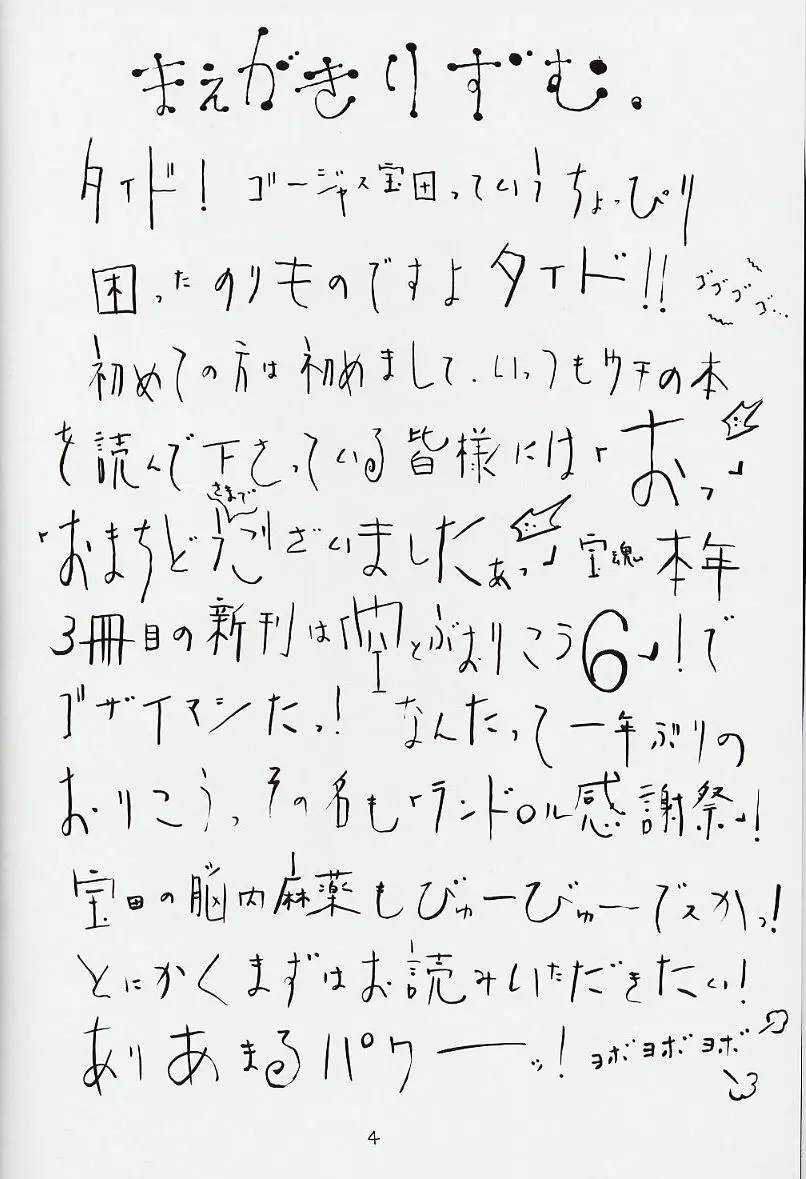 まえがきりずむ。
タイド! ゴージャス宝田っていうちょっぴり
困ったのりものですよタイド!! ゴゴゴゴ…
初めての方は初めまして、いっつもウチの本
を読んで下さっている皆様には「おっ」
さまで
「おまちどうございましたぁっ」宝魂 本年
3冊目の新刊は「空とぶおりこう6」!で
ゴザイマシたっ! なんたって一年ぶりの
おりこうっ、その名も「ランドロル感謝祭」!
宝田の脳内麻薬もびゅーびゅーでスかっ!
とにかくまずはお読みいただきたい!
ありあまるパワーーッ! ヨボヨボヨボ
4